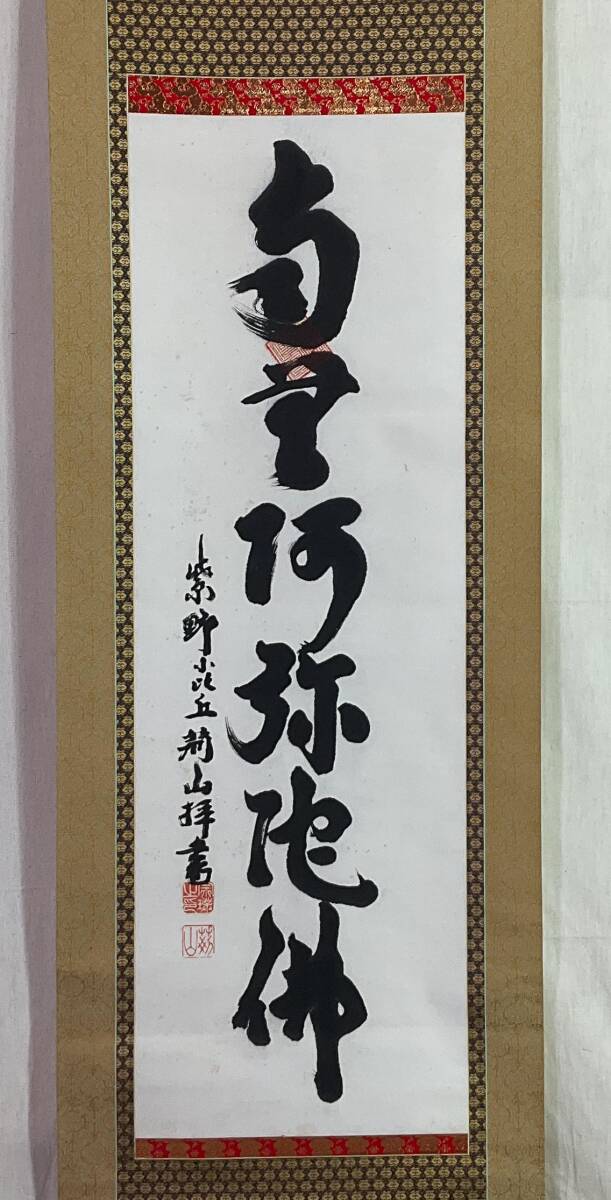 南無阿弥陀佛
紫野小比丘荊山拝書